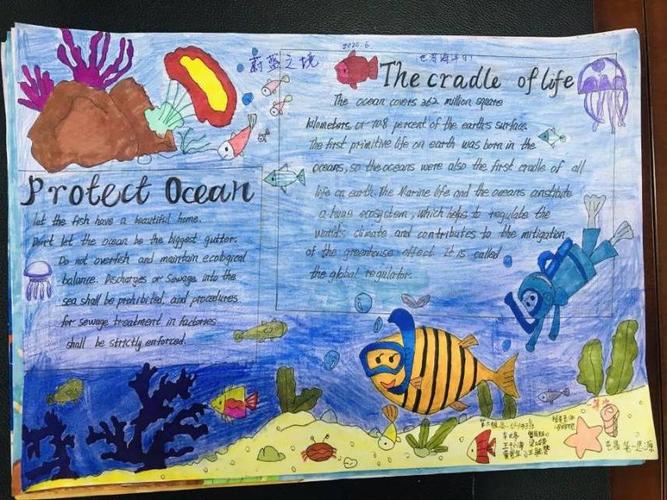 蔚蓝之境
2020.6
Protect Ocean
let the fish have a beautiful home.
Don't let the ocean be the biggest gutter.
Do not overfish and maintain ecological
balance. Discharges or sewage into the
sea shall be prohibited, and procedures
for sewage treatment in factories
shall be strictly enforced.
The cradle of life
The ocean covers 362 million square
kilometers, or 70.8 percent of the earth's surface.
The first primitive life on earth was born in the
oceans, so the oceans were also the first cradle of all
life on earth. The Marine life and the oceans constitute
a huge ecosystem, which helps to regulate the
world's climate and contributes to the mitigation
of the greenhouse effect. It is called
the global regulator.